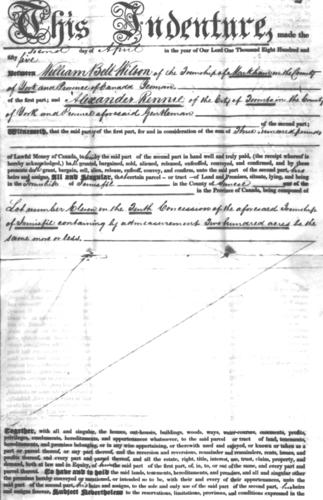 This Indenture, made the
Second day of April in the year of our Lord One Thousand Eight Hundred and
fifty five
Between William Bell Wilson of the Township of Markham in the County
of York and Province of Canada Yeoman
of the first part; and Alexander Rennie of the City of Toronto in the County
of York and Province aforesaid Gentleman
of the second part;
Witnesseth, that the said party of the first part, for and in consideration of the sum of Three hundred pounds
of Lawful Money of Canada, to him by the said part of the second part in hand well and truly paid, (the receipt whereof is
hereby acknowledged,) hath granted, bargained, sold, aliened, released, enfeoffed, conveyed, and confirmed, and by these
presents doth grant, bargain, sell, alien, release, enfeoff, convey, and confirm, unto the said part of the second part, his
heirs and assigns, All and Singular, that certain parcel or tract of Land and Premises, situate, lying, and being
in the Township of Innisfil in the County of Simcoe
in the Province of Canada, being composed of
Lot number Eleven in the Tenth Concession of the aforesaid Township
of Innisfil containing by admeasurement Two hundred acres be the
same more or less.
Together, with all and singular, the houses, out-houses, buildings, woods, ways, water-courses, emoluments, profits,
privileges, easements, hereditaments, and appurtenances whatsoever, to the said parcel or tract of land, tenements,
hereditaments, and premises belonging, or in any wise appertaining, or therewith used and enjoyed, or known or taken as a
part or parcel thereof, or any part thereof, and the reversion and reversions, remainder and remainders, rents, issues, and
profits thereof, and every part and parcel thereof, and all the estate, right, title, interest, use, trust, claim, property, and
demand, both at law and in Equity, of the said part of the first part, of, in, to, or out of the same, and every part and
parcel thereof. To have and to hold the said lands, tenements, hereditaments, and premises, and all and singular other
the premises hereby conveyed or mentioned, or intended so to be, with their and every of their appurtenances, unto the
said part of the second part, his heirs and assigns, to the sole and only use of the said part of the second part, his heirs
and assigns forever. Subject Nevertheless to the reservations, limitations, provisoes, and conditions expressed in the